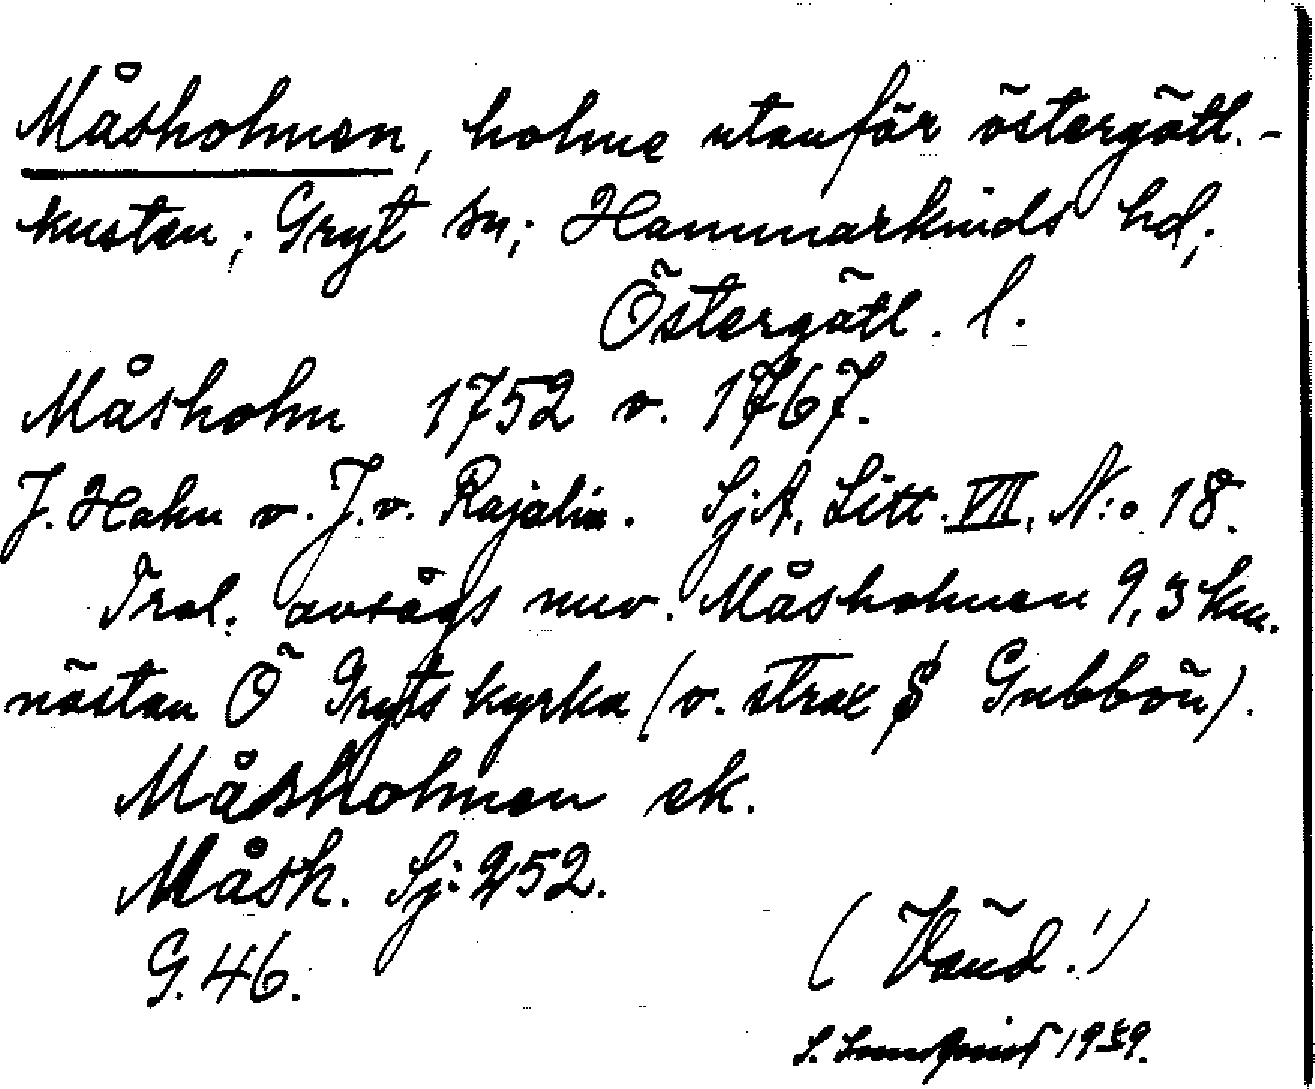 Måsholmen, holme utanför östergötl.-
kusten; Gryt sn; Hammarkinds hd;
Östergötl. l.
Måsholm 1752 o. 1767.
J. Hahn o. J. v. Rajalin. Sj.A. Litt. VII, N:o 18.
Trol. avsågs nuv. Måsholmen 9,3 km.
nästan Ö Gryts kyrka (o. strax S Gubbön).
Måsholmen ek.
Måsh. Sj: 252.
G. 46.
(Vänd!)
S. 1939.